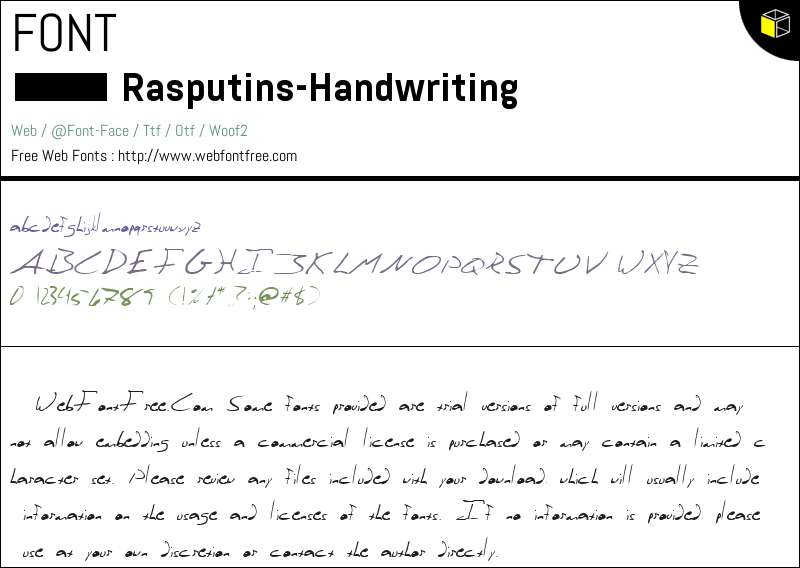 FONT
Rasputins-Handwriting
Web / @Font-Face / Ttf / Otf / Woof2
Free Web Fonts : http://www.webfontfree.com
abcdefghijklmnopqrstuvwxyz
ABCDEFGHIJKLMNOPQRSTUVWXYZ
0123456789 (!%+*.?:;@#$)
WebFontFree.Com Some fonts provided are trial versions of full versions and may
not allow embedding unless a commercial license is purchased or may contain a limited c
haracter set. Please review any files included with your download, which will usually include
information on the usage and licenses of the fonts. If no information is provided, please
use at your own discretion or contact the author directly.